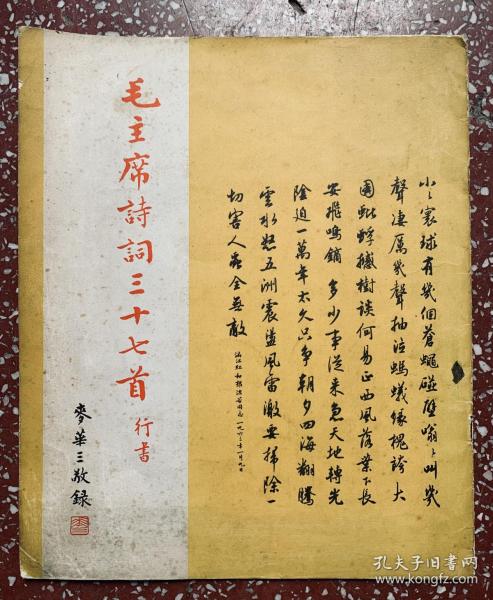 毛主席詩詞三十七首
行書
麥華三敬錄
小々寰球有幾個蒼蠅碰壁嗡々叫幾
聲凄厲幾聲抽泣螞蟻緣槐誇大
國蚍蜉撼樹談何易正西風落葉下長
安飛鳴鏑多少事從來急天地轉光
陰迫一萬年太久只爭朝夕四海翻騰
雲水怒五洲震盪風雷激要掃除一
切害人虫全無敵
滿江紅 和郭沫若同志 一九六三年一月九日
孔夫子旧书网
www.kongfz.com